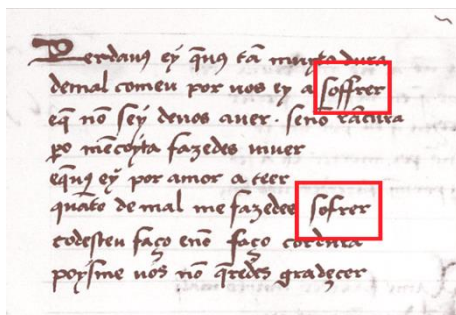 Perdang ey q̄ng tā muyta dura
demal comeu por uos ey a soffrer
eq̄ nō sey deuos auer . senō rācura
po mēcoyta fazedes uiuer
eq̄ng ey por amor a teer
quāto de mal me fazedes sofrer
todesteu faço enō faço cordura
poysme uós nō q̄redes gradeçer